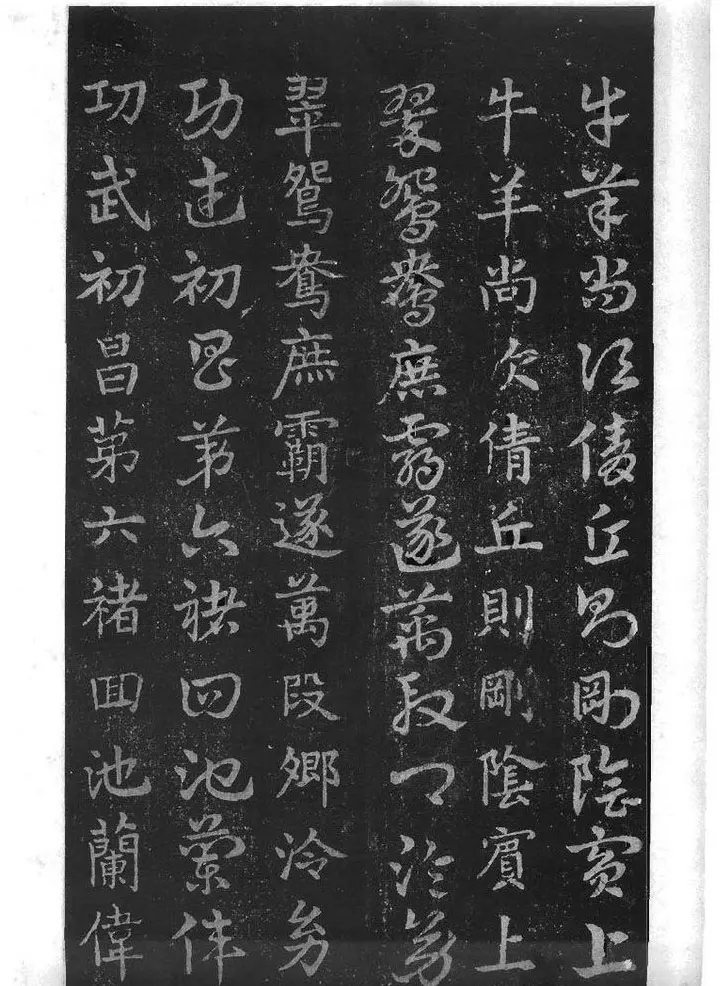 牛羊尚欠倩丘則剛陰賓上
牛羊尚欠倩丘則剛陰賓上
翠鴛鴦庶霸遂萬段鄉泠
翠鴛鴦庶霸遂萬段鄉泠
功武初昌苐六褚四池蘭偉
功武初昌苐六褚四池蘭偉